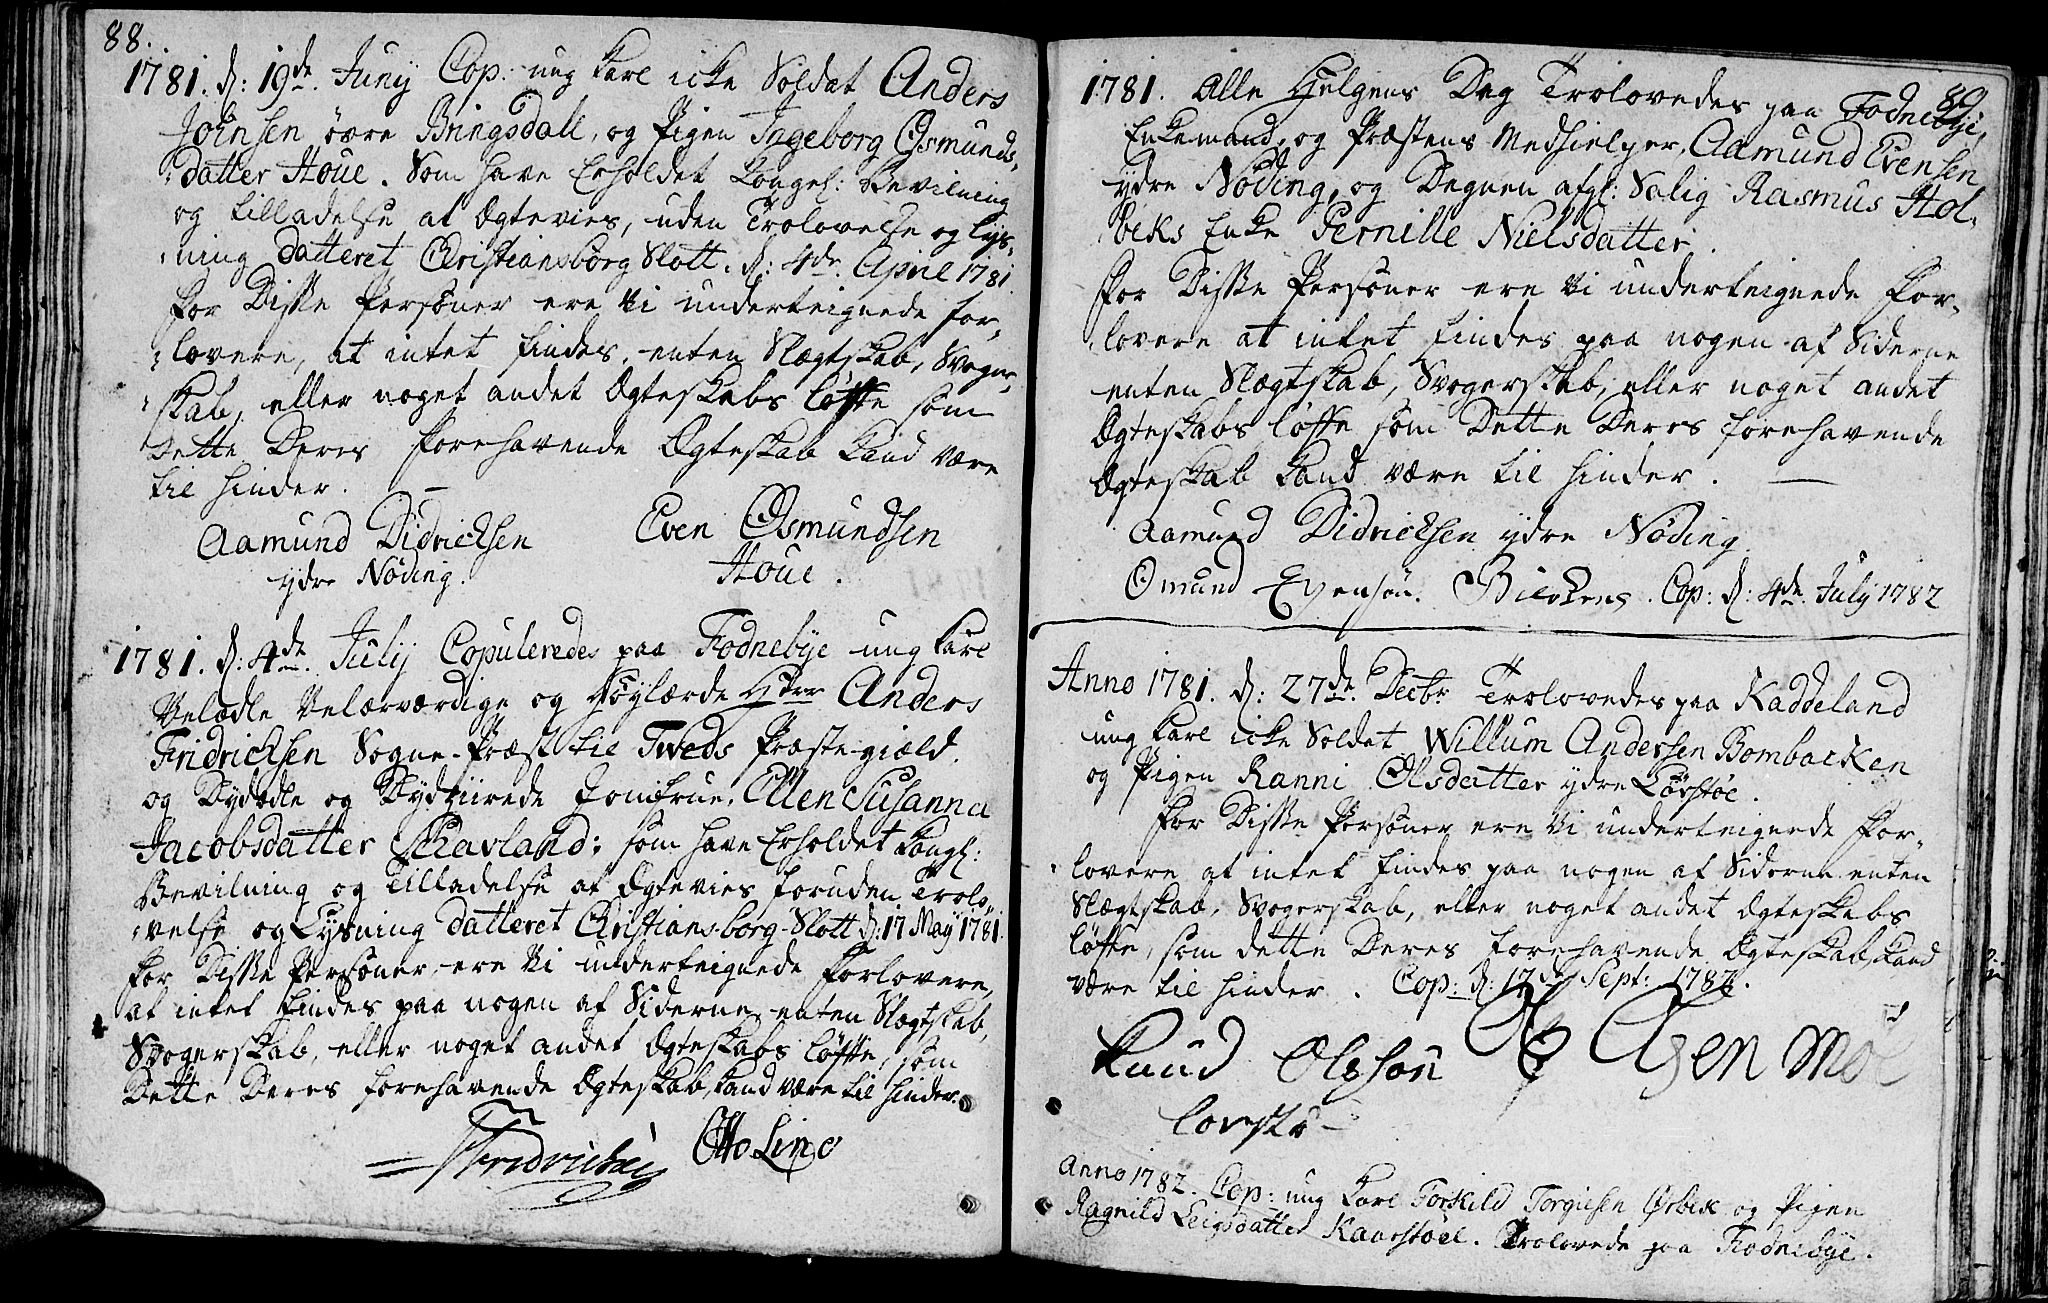 88.
1781. d: 19de Junij Cop: ung karl icke Soldat Anders
Johnsen øvre Bringsdall, og Pigen Ingeborg Osmunds-
datter Houe. Som have Erholdet Kongel: Bevilning
og tilladelse at Ægtevies, uden Trolovelse og Lys-
ning datteret Christiansborg Slott. d: 4de April 1781
For Disse Personer ere Vi underteignede for-
lovere, at intet findes, enten Slægtskab, Svoger-
skab, eller noget andet Ægteskabs løfte som
Dette Deres forehavende Ægteskab kand være
til hinder.
Aamund Didricksen Even Osmundsen
ydre Nøding. Houe.
1781. d: 4de Julij Copuleredes paa Fodnebye ung karl
Velædle Velærværdige og Høylærde Hr Anders
Fridricksen Sogne-Præst til Tweds Præste-gield.
og Dydædle og Dydziirede Jomfrue, Ellen Susanna
Jacobsdatter Schavland; som have Erholdet Kongl:
Bevilning og Tilladelse at Ægtevies foruden Trolo-
velse og Lysning datteret Christiansborg-Slott d: 17 Maÿ 1781.
For Disse Personer ere Vi underteignede Forlovere,
at intet findes paa nogen af Siderne enten Slægtskab,
Svogerskab, eller noget andet Ægteskabs løfte, som
Dette Deres forehavende Ægteskab kand være til hinder.
Fridrichsen Otto Lind
89
1781. Alle Helgens Dag Trolovedes paa Fodnebye,
Enkemand, og Præstens Medhielper, Aamund Evensen
ydre Nøding, og Degnen afgl: Salig Rasmus Hol-
beks Enke Pernille Nielsdatter.
For Disse Personer ere Vi underteignede For-
lovere at intet findes paa nogen af Siderne
enten Slægtskab, Svogerskab, eller noget andet
Ægteskabs løfte som Dette Deres forehavende
Ægteskab kand være til hinder.
Aamund Didricksen ydre Nøding
Omund Evensøn. Cop: d: 4de July 1782
Anno 1781. d: 27de Decbr Trolovedes paa Kaddeland
ung karl icke Soldat Willum Andersen Bombacken
og Pigen Ranni Olsdatter ydre Lørstøe.
For Disse Personer ere Vi underteignede For-
lovere at intet findes paa nogen af Siderne enten
Slægtskab, Svogerskab, eller noget andet Ægteskabs
løfte, som dette Deres forehavende Ægteskab kand
være til hinder. Cop: d: 12de Sept: 1782.
Knud Olsøn
Anno 1782. Cop: ung karl Torkild Torgiesen Ørbek og Pigen
Ragnild Leigsdatter Kaarstøel. Trolovede paa Fodnebye.